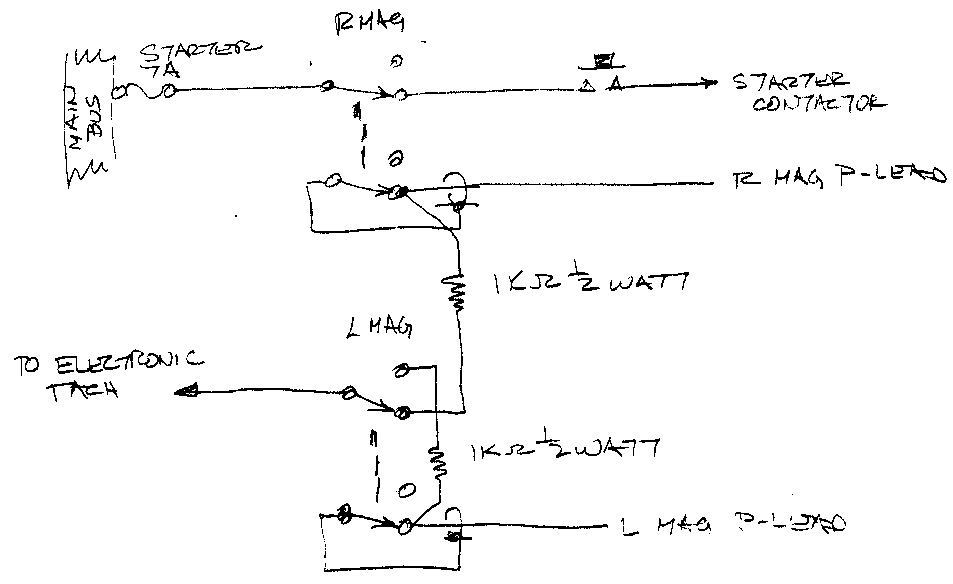 R MAG
STARTER
7A
MAIN
BUS
STARTER
CONTACTOR
R MAG P-LEAD
1K Ω ½ WATT
L MAG
TO ELECTRONIC
TACH
1K Ω ½ WATT
L MAG P-LEAD